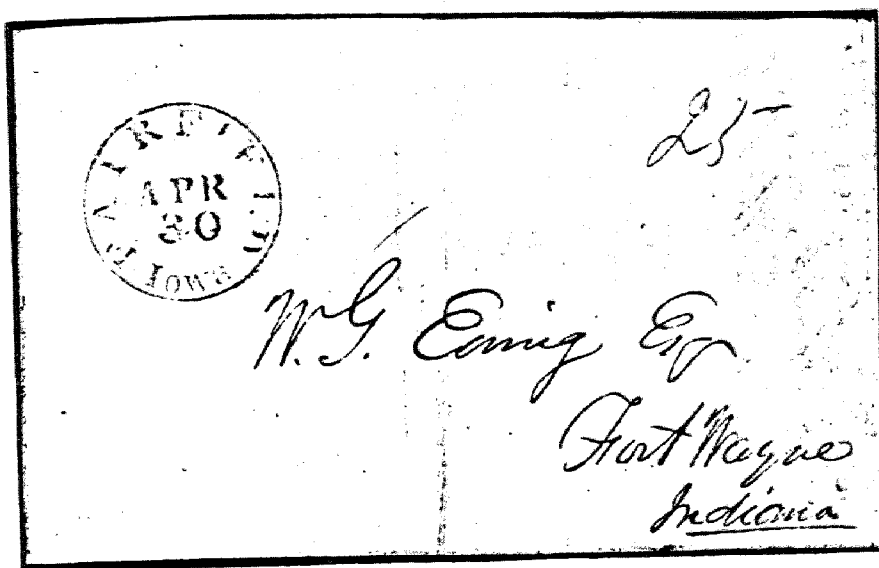 FAIRFIELD
APR
30
IOWA
25
W. G. Ewing Esq
Fort Wayne
Indiana